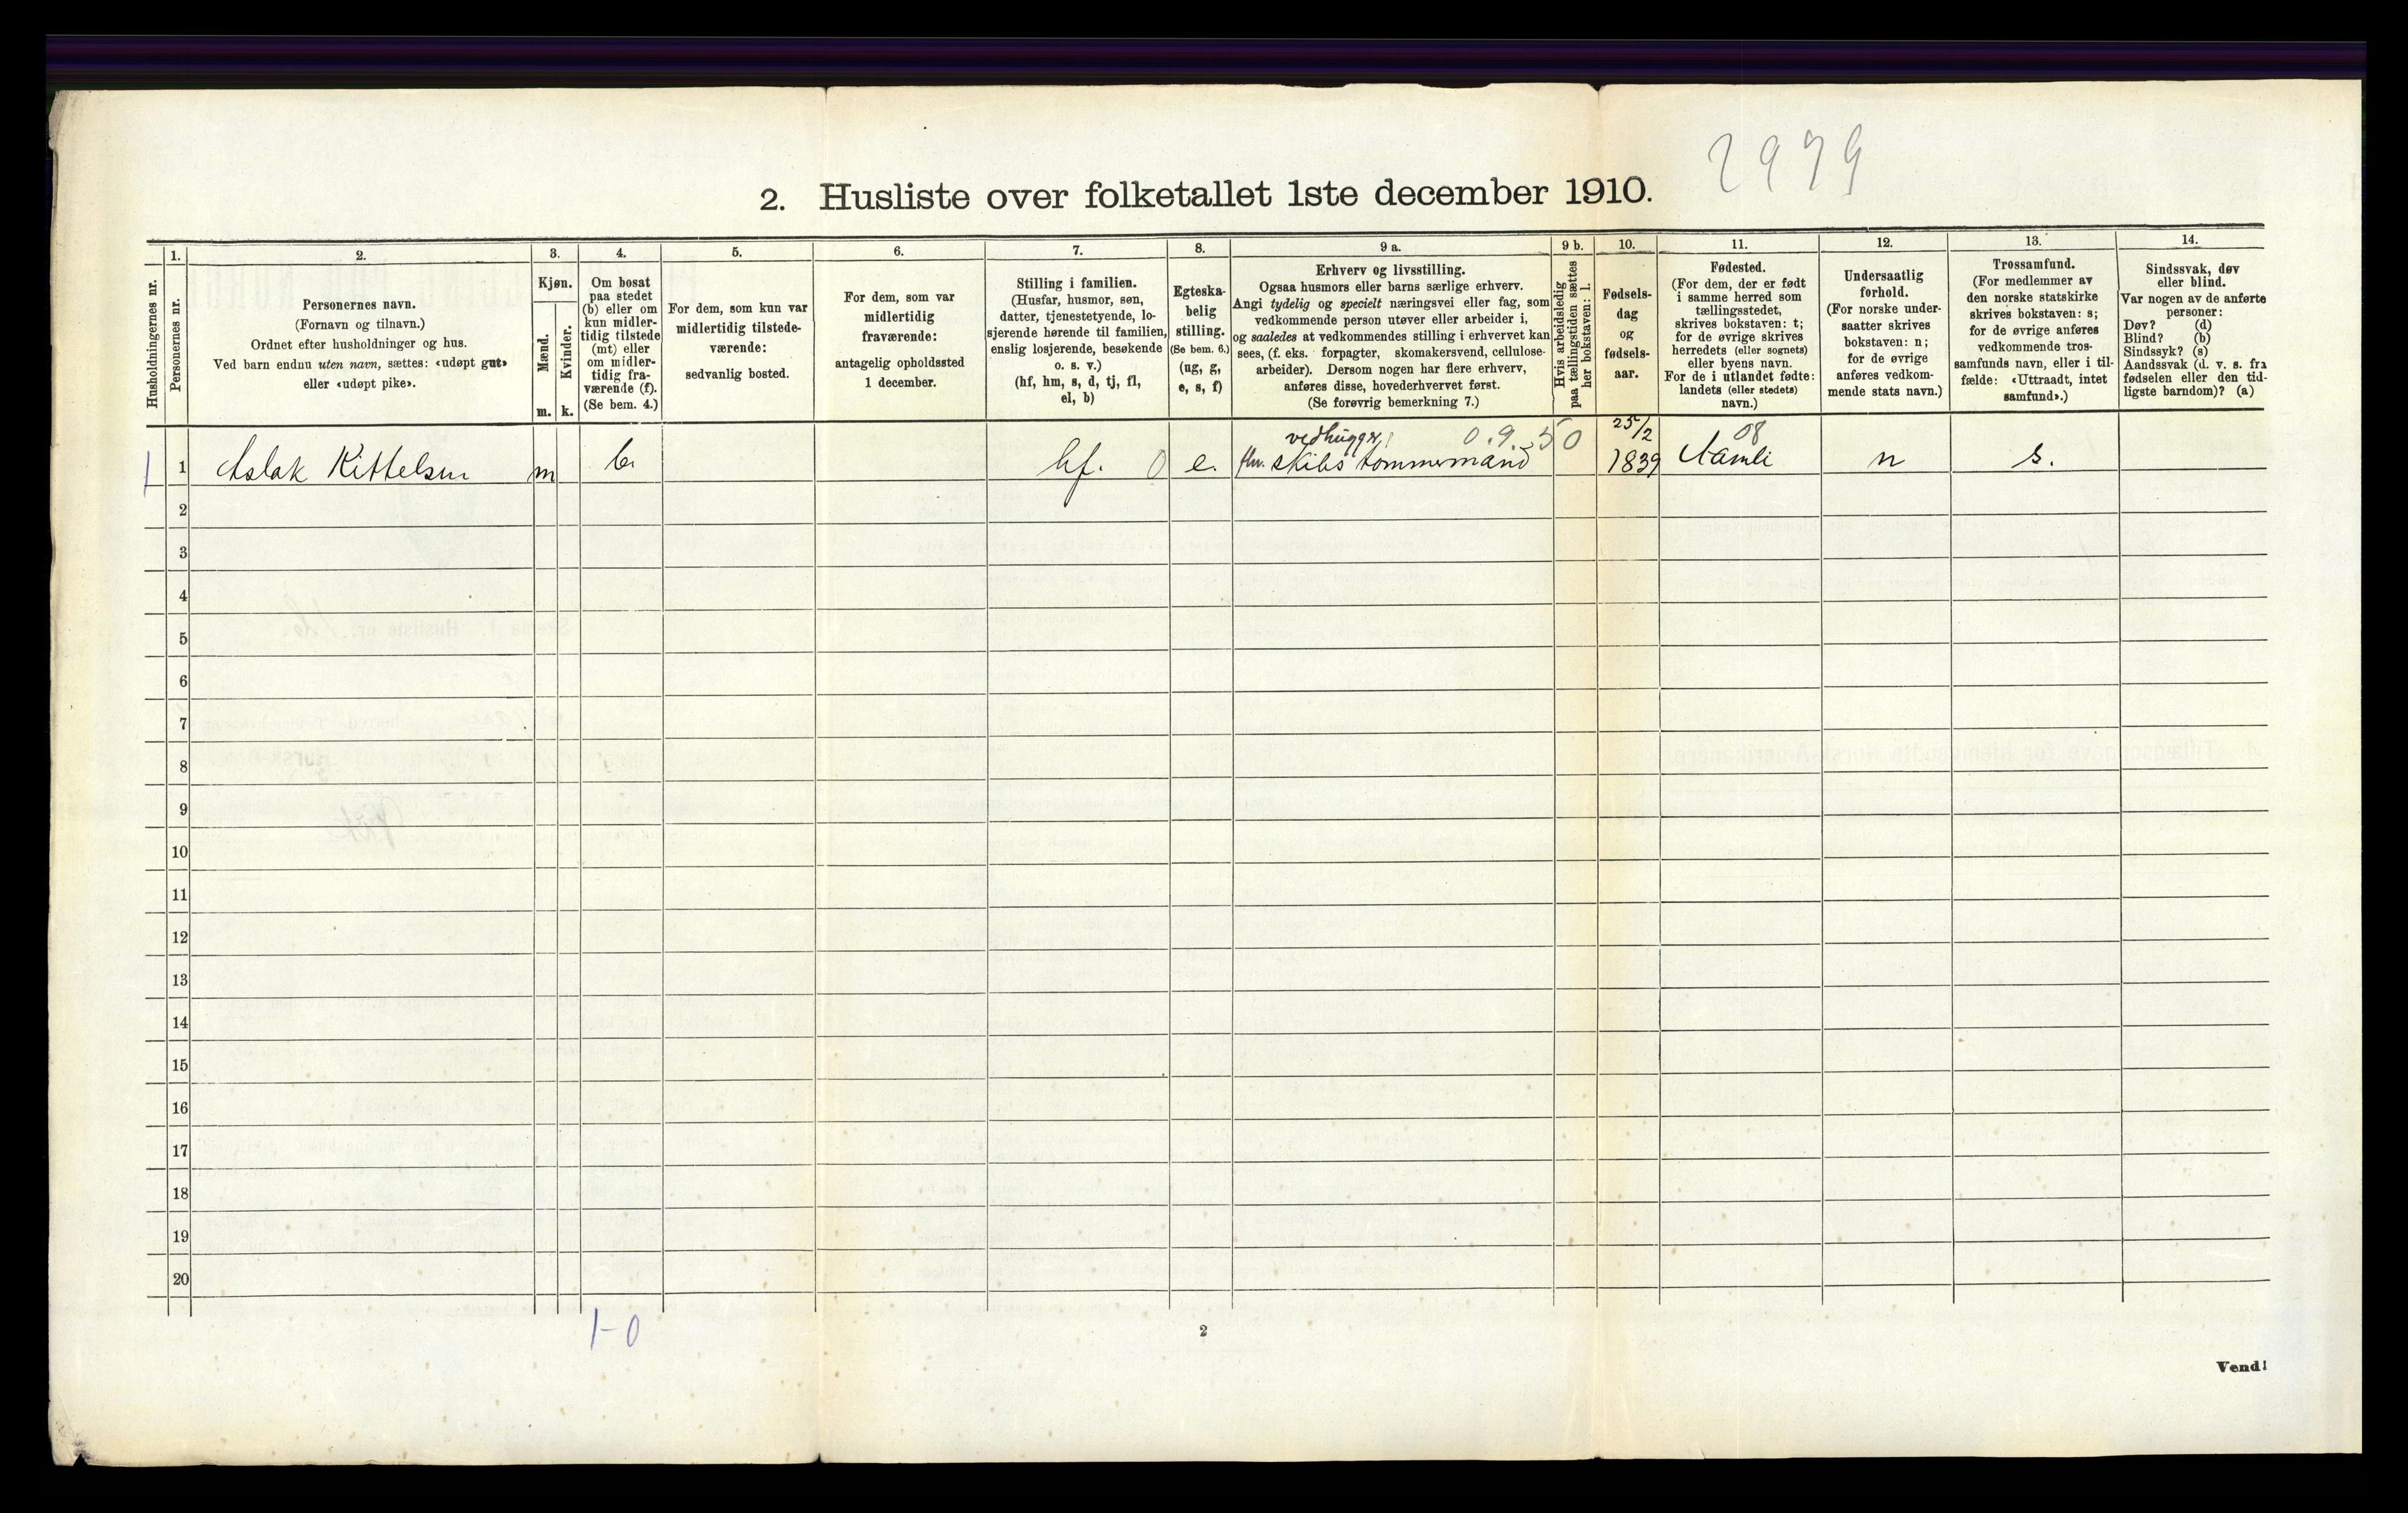 2979
2. Husliste over folketallet 1ste december 1910.
Husholdningernes nr.
1.
Personernes nr.
2.
Personernes navn.
(Fornavn og tilnavn.)
Ordnet efter husholdninger og hus.
Ved barn endnu uten navn, sættes: «udøpt gut»
eller «udøpt pike».
3.
Kjøn.
Mænd.
m.
Kvinder.
k.
4.
Om bosat
paa stedet
(b) eller om
kun midler-
tidig tilstede
(mt) eller
om midler-
tidig fra-
værende (f).
(Se bem. 4.)
5.
For dem, som kun var
midlertidig tilstede-
værende:
sedvanlig bosted.
6.
For dem, som var
midlertidig
fraværende:
antagelig opholdssted
1 december.
7.
Stilling i familien.
(Husfar, husmor, søn,
datter, tjenestetyende, lo-
sjerende hørende til familien,
enslig losjerende, besøkende
o. s. v.)
(hf, hm, s, d, tj, fl,
el, b)
8.
Egteska-
belig
stilling.
(Se bem. 6.)
(ug, g,
e, s, f)
9 a.
Erhverv og livsstilling.
Ogsaa husmors eller barns særlige erhverv.
Angi tydelig og specielt næringsvei eller fag, som
vedkommende person utøver eller arbeider i,
og saaledes at vedkommendes stilling i erhvervet kan
sees, (f. eks. forpagter, skomakersvend, cellulose-
arbeider). Dersom nogen har flere erhverv,
anføres disse, hovederhvervet først.
(Se forøvrig bemerkning 7.)
9 b.
Hvis arbeidsledig
paa tællingstiden sættes
her bokstaven: l.
10.
Fødsels-
dag
og
fødsels-
aar.
11.
Fødested.
(For dem, der er født
i samme herred som
tællingsstedet,
skrives bokstaven: t;
for de øvrige skrives
herredets (eller sognets)
eller byens navn.
For de i utlandet fødte:
landets (eller stedets)
navn.)
12.
Undersaatlig
forhold.
(For norske under-
saatter skrives
bokstaven: n;
for de øvrige
anføres vedkom-
mende stats navn.)
13.
Trossamfund.
(For medlemmer av
den norske statskirke
skrives bokstaven: s;
for de øvrige anføres
vedkommende tros-
samfunds navn, eller i til-
fælde: «Uttraadt, intet
samfund».)
14.
Sindssvak, døv
eller blind.
Var nogen av de anførte
personer:
Døv? (d)
Blind? (b)
Sindssyk? (s)
Aandssvak (d. v. s. fra
fødselen eller den tid-
ligste barndom)? (a)
vedhugger 0.9.50 25/2 08
1 1 Aslak Kittelsen m b. hf. 0 e. fhv. skibs tømmermand 1839 Aamli n s.
2
3
4
5
6
7
8
9
10
11
12
13
14
15
16
17
18
19
20
1-0
2
Vend!